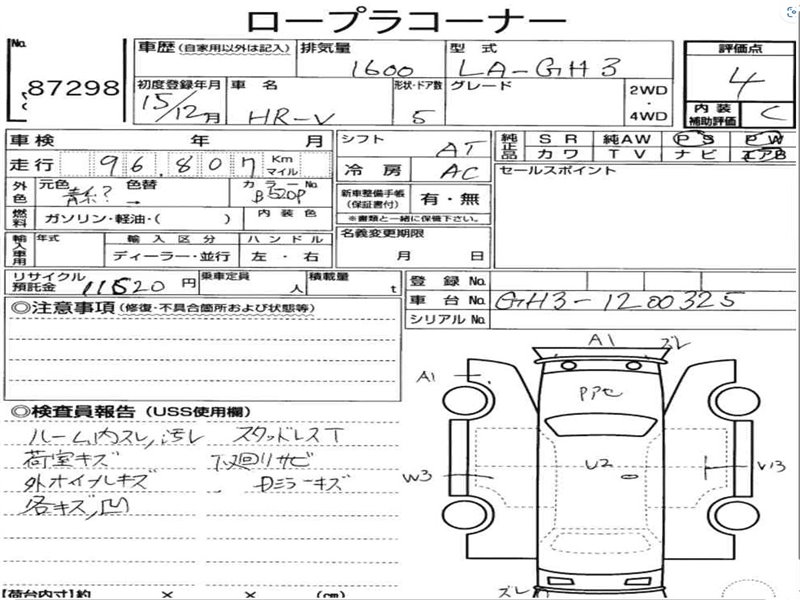 ロープラコーナー
No. 87298
車歴 (自家用以外は記入) 排気量 1600 型式 LA-GH3
評価点 4
内装補助評価 C
初度登録年月 15/12月 車名 HR-V 形状・ドア数 5 グレード 2WD・4WD
車検 年 月 シフト AT
純正品 SR 純AW PS PW
カワ TV ナビ エアB
走行 96,807 Km マイル 冷房 AC
セールスポイント
外色 元色 青系? 色替 → カラーNo. B520P
新車整備手帳(保証書付) 有・無
※書類と一緒に保管下さい。
燃料 ガソリン・軽油・( ) 内装色
輸入車用 年式 輸入区分 ハンドル
ディーラー・並行 左・右
名義変更期限
月 日
リサイクル預託金 11520円 乗車定員 人 積載量 t
登録No.
車台No. GH3-1200325
シリアルNo.
◎注意事項 (修復・不具合箇所および状態等)
◎検査員報告 (USS使用欄)
ルーム内スレ,汚レ スタッドレスT
荷室キズ 下廻リサビ
外ホイールキズ Dミラーキズ
各キズ,凹
A1 ズレ
A1
PアセU2
W3
V13
ズレ
【荷台内寸】約 × × (cm)